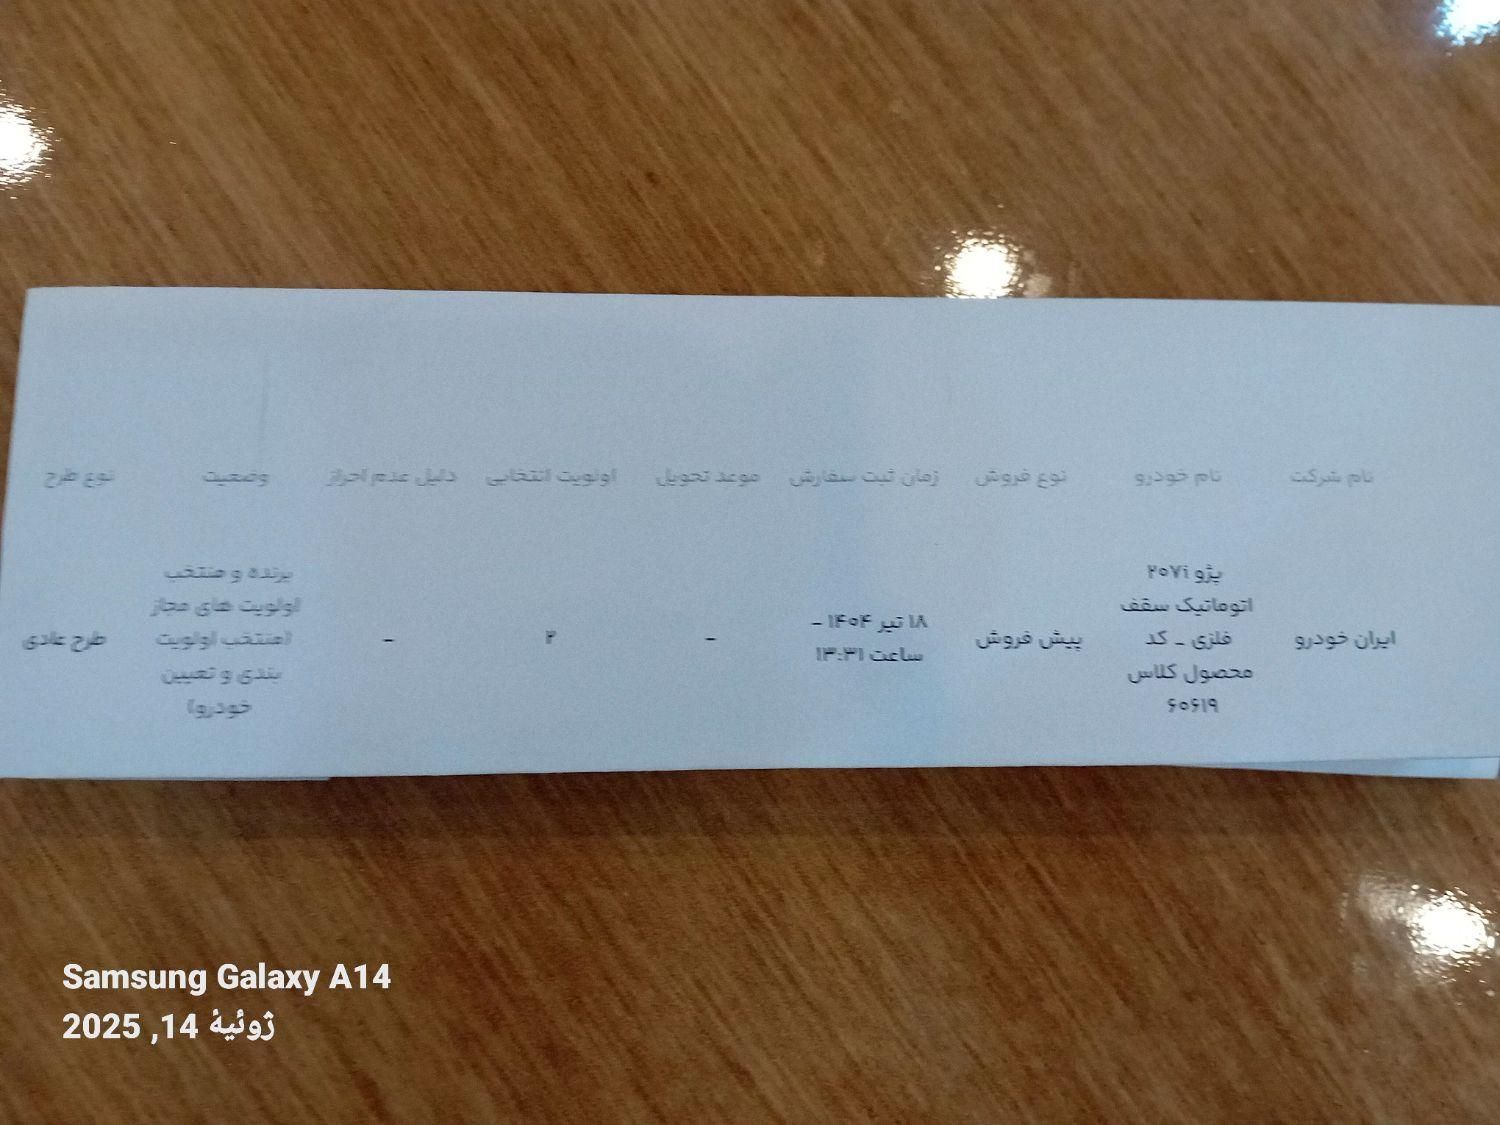 نام شرکت نام خودرو نوع فروش زمان ثبت سفارش موعد تحویل اولویت انتخابی دلیل عدم احراز وضعیت نوع طرح
ایران خودرو
پژو ۲۰۷i
اتوماتیک سقف
فلزی - کد
محصول کلاس
۶۰۶۱۹
پیش فروش
۱۸ تیر ۱۴۰۴ -
ساعت ۱۳:۳۱
-
۲
-
برنده و منتخب
اولویت های مجاز
(منتخب اولویت
بندی و تعیین
خودرو)
طرح عادی
Samsung Galaxy A14
ژوئیهٔ 14, 2025